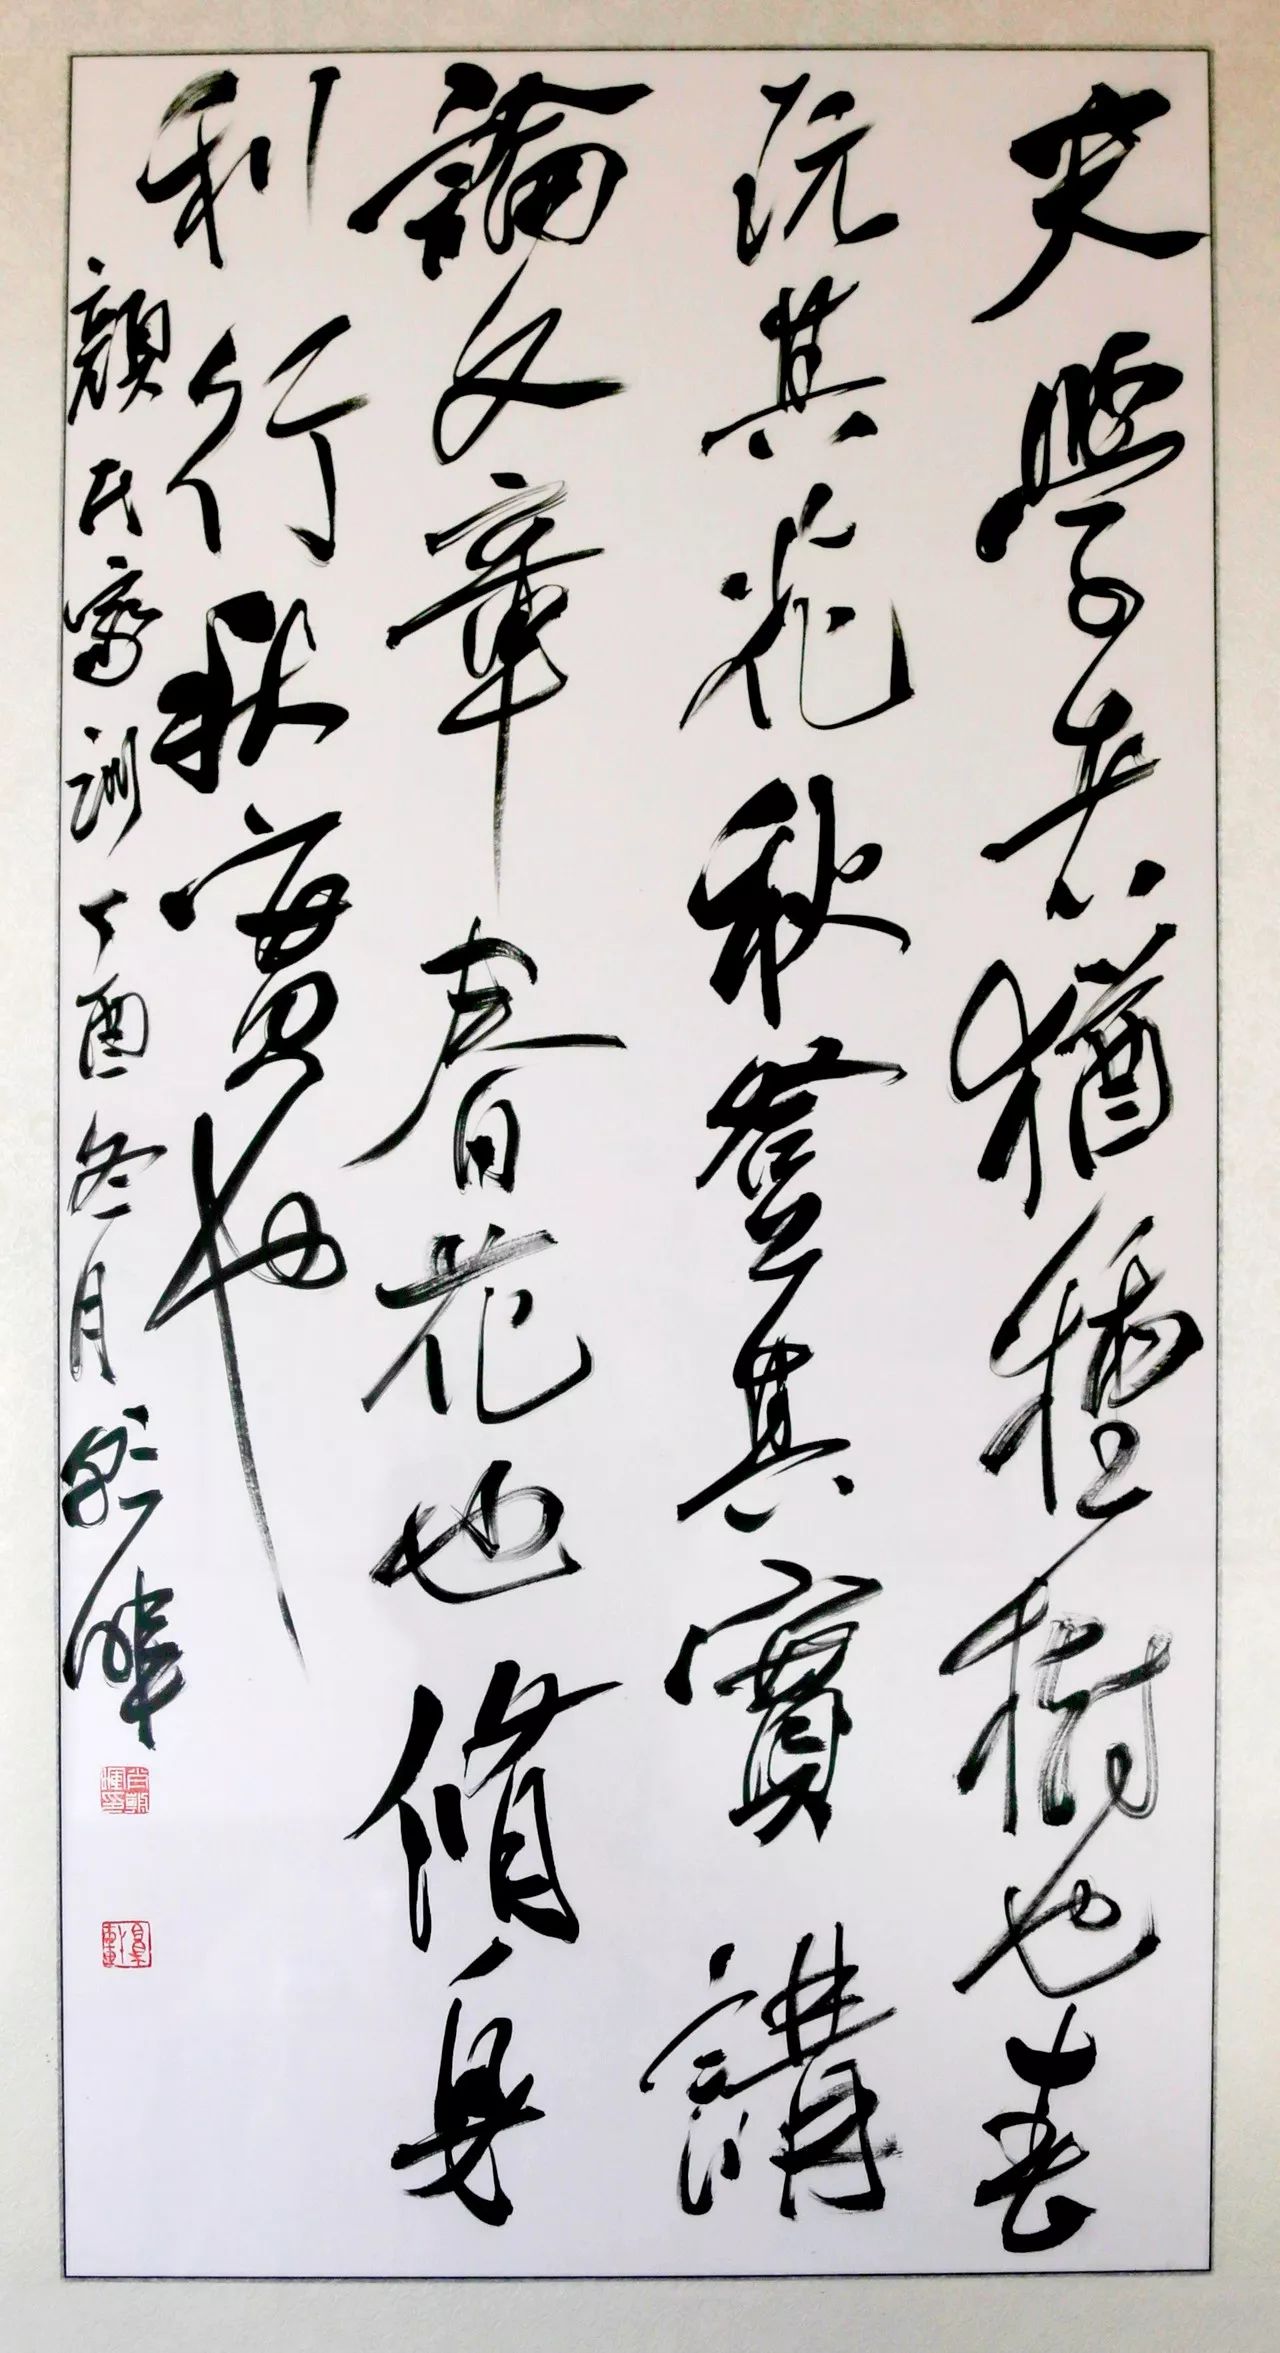 夫學者猶種樹也春
玩其花秋登其實講
論文章春花也脩身
利行秋實也
顏氏家訓丁酉冬月